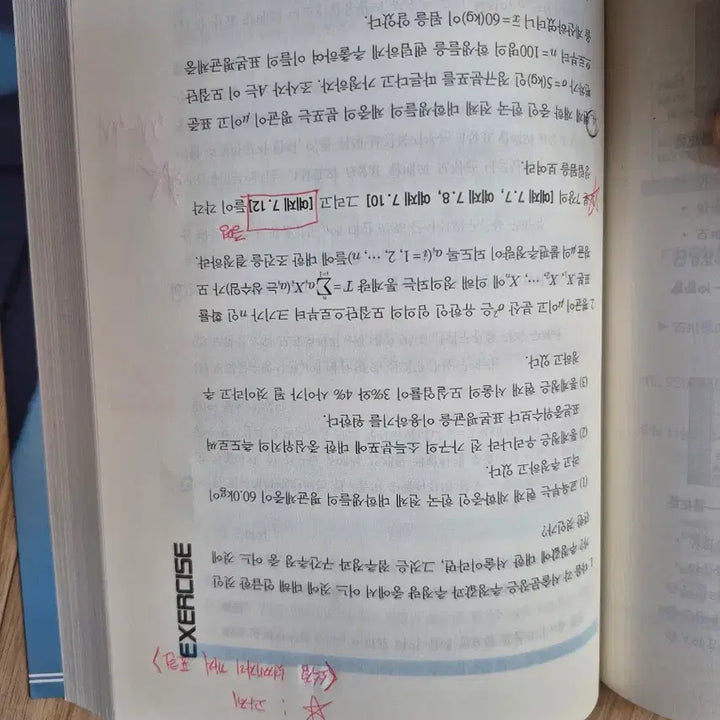 ☆ : 과제
EXERCISE
1. 다음 각 서술문장은 추정값과 추정량 중에서 어느 것에 대해 언급한 것인
가? 추정값에 대한 서술이라면, 그것은 점추정과 구간추정 중 어느 것에
관한 것인가?
(1) 교육부는 현재 재학중인 한국 전체 대학생들의 평균체중이 60.0kg이
라고 추정하고 있다.
(2) 통계청은 우리나라 전 가구의 소득분포에 대한 중심위치의 측도로써
표본중위수보다 표본평균을 이용하기를 원한다.
(3) 통계청은 현재 서울의 실업률이 3%와 4% 사이가 될 것이라고 추
정하고 있다.
2. 평균이 μ이고 분산 σ²은 유한인 임의의 모집단으로부터 크기가 n인 확률
표본 X₁, X₂, …, Xₙ에 의해 정의되는 통계량 T=∑ⁿᵢ₌₁aᵢXᵢ(aᵢ는 상수임)가 모
평균 μ의 불편추정량이 되도록 aᵢ(i=1, 2, …, n)들에 대한 조건을 결정하라.
증명
7장의 [예제 7.7, 예제 7.8, 예제 7.10] 그리고 [예제 7.12]들이 각각
성립됨을 보여라.
4. 현재 재학 중인 한국 전체 대학생들의 체중의 분포는 평균이 μ이고 표준
편차 σ=5(kg)인 정규분포를 따른다고 가정하자. 조사자 A는 이 모집단
으로부터 n=100명의 학생들을 랜덤하게 추출하여 이들의 표본평균체중
을 계산하였더니 x̄=60(kg)이 됨을 알았다.